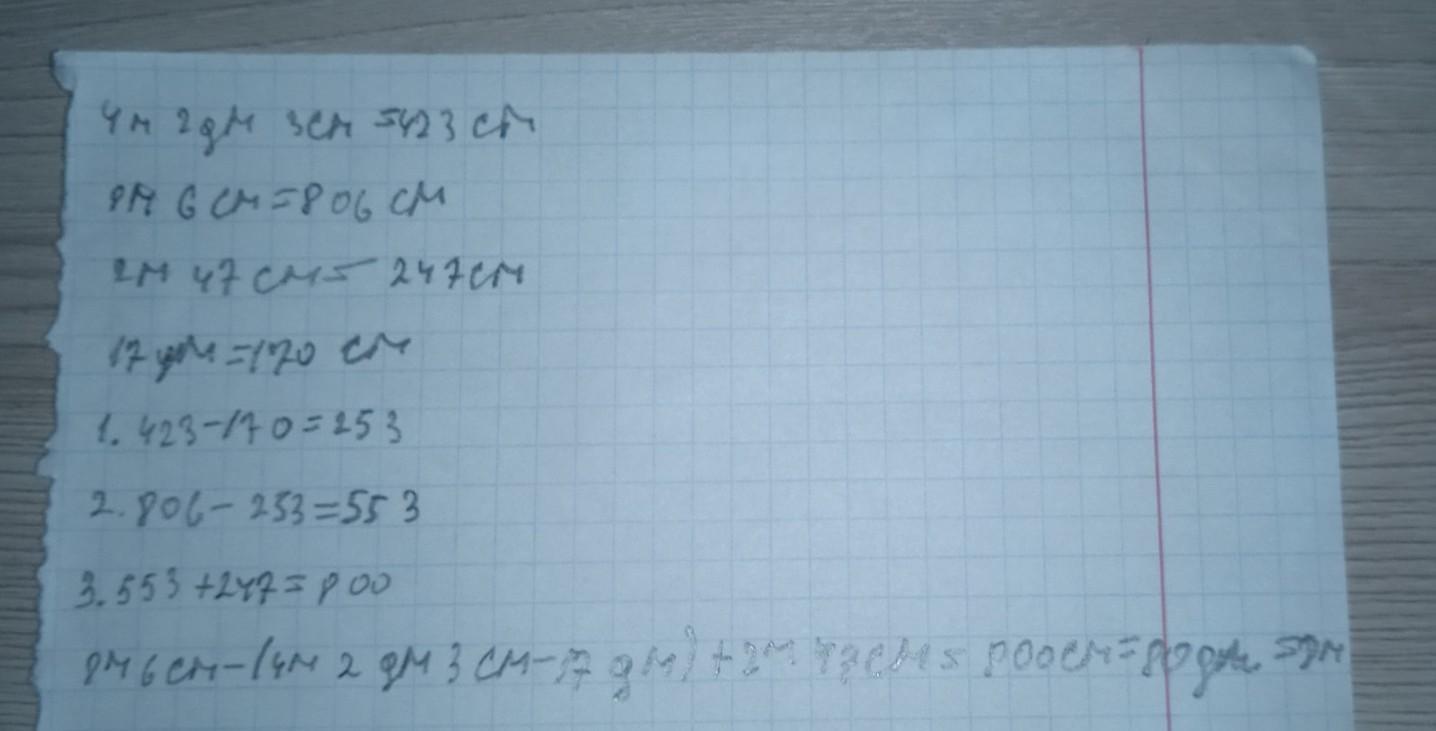 4м 2дм 3см =423 см
8м 6 см=806 см
2м 47 см= 247см
17дм=170 см
1. 423-170=253
2. 806-253=553
3. 553+247=800
8м 6см-(4м 2 дм 3 см-17 дм)+2м 47см= 800см=80дм =8м